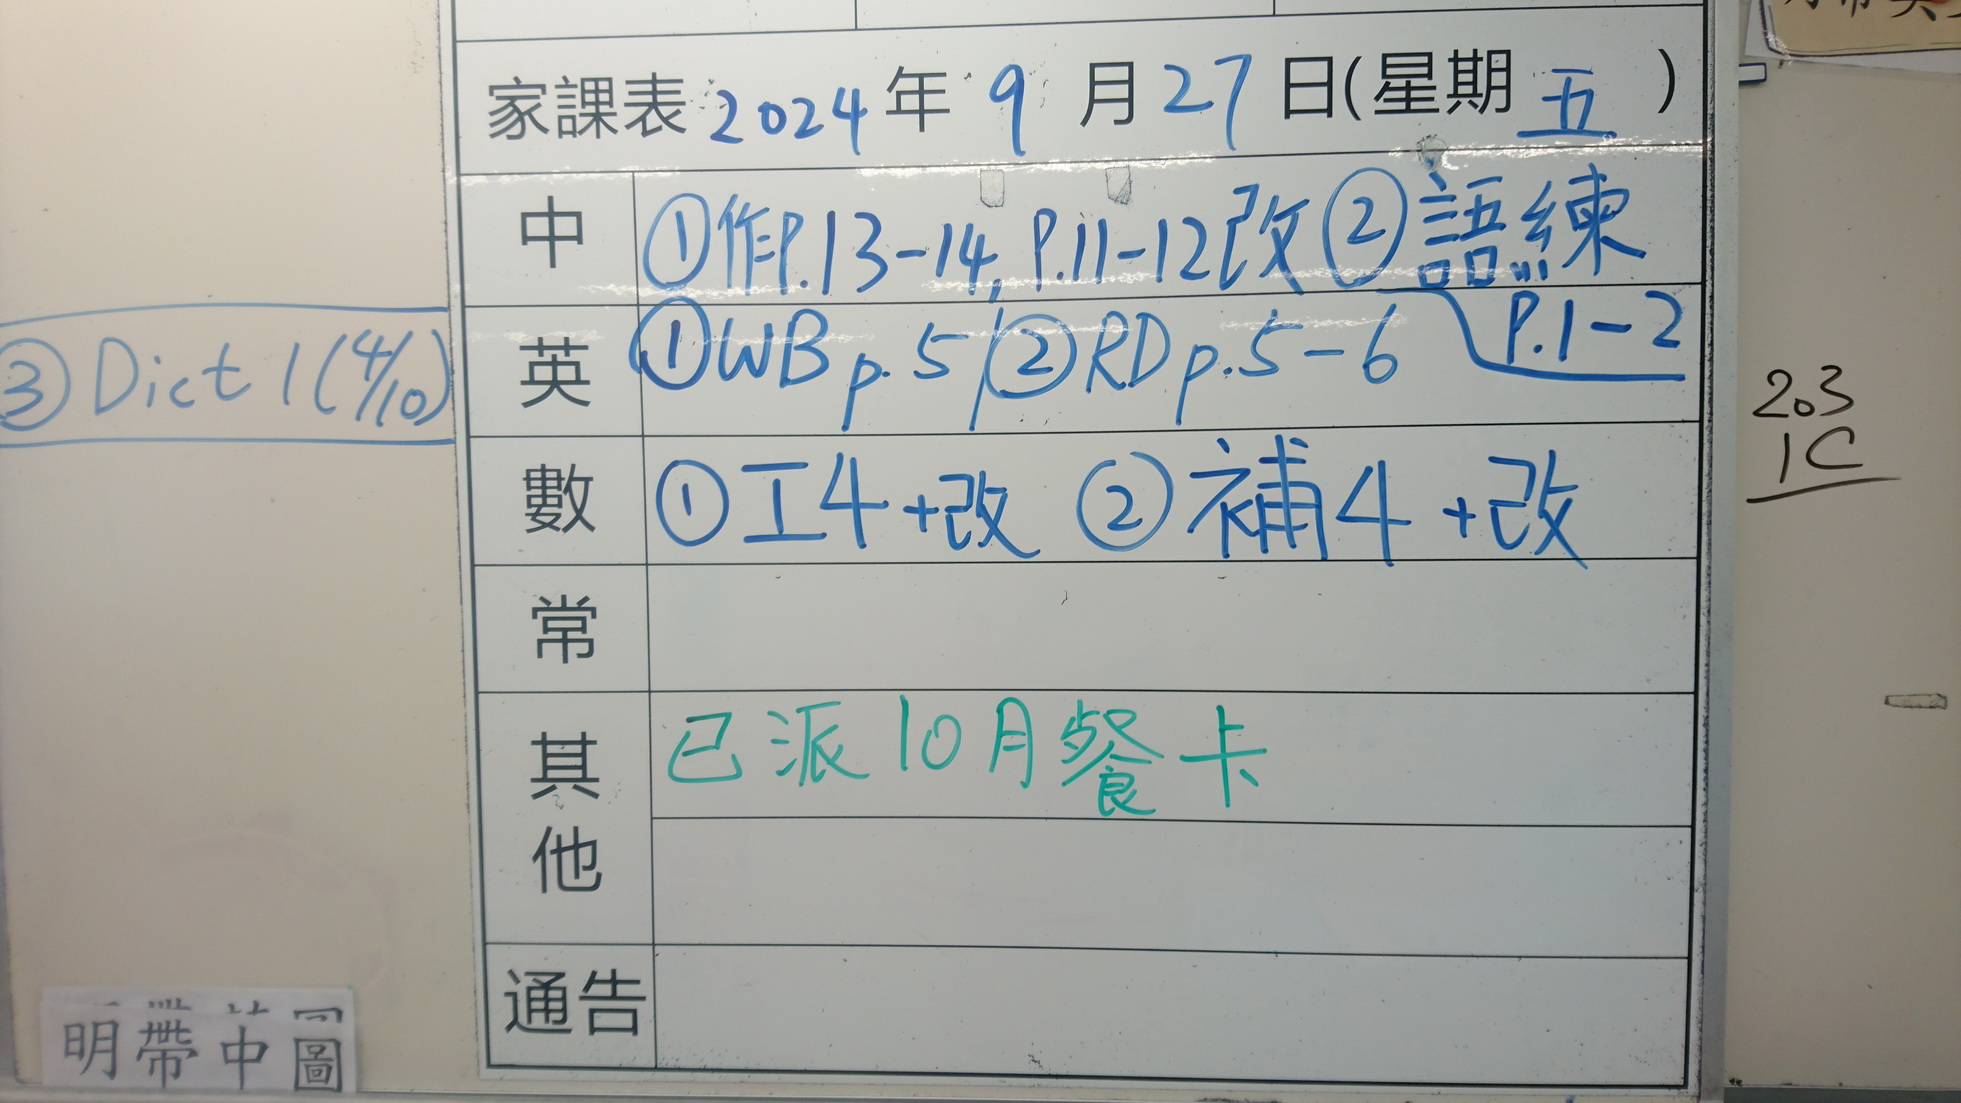 家課表 2024 年 9 月 27 日(星期 五 )
中 ①作P.13-14, P.11-12改 ②語練
P.1-2
英 ①WB p.5 ②RD p.5-6
③Dict 1 (4/10)
數 ①工4+改 ②補4+改
常
其他 已派10月餐卡
通告
203
1C
明帶中圖